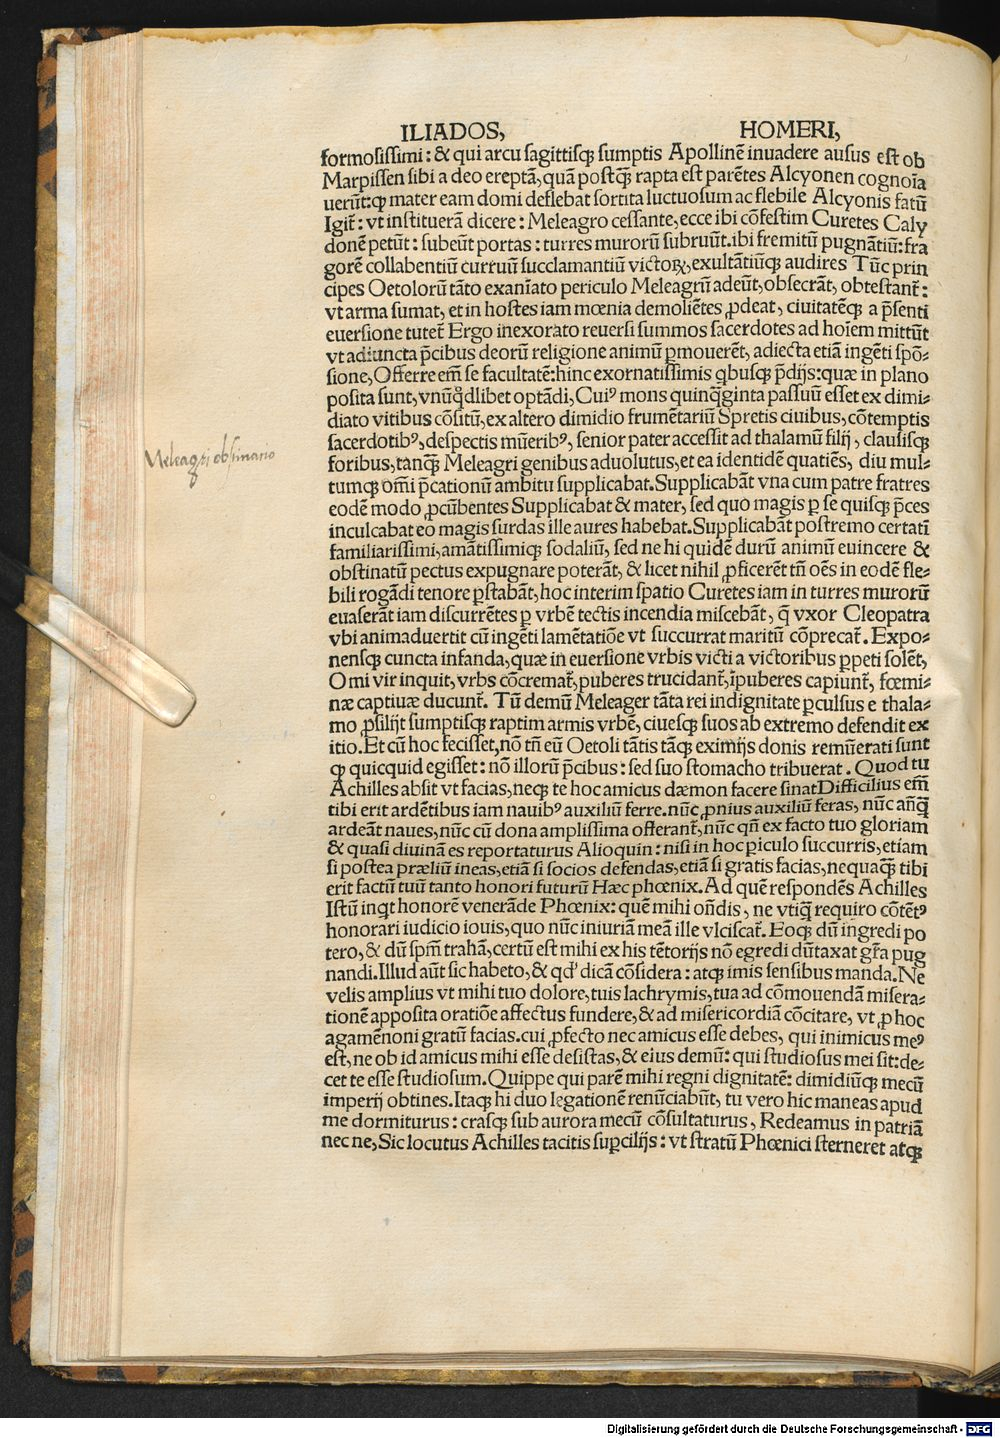 ILIADOS, HOMERI,
formosissimi: & qui arcu sagittisqꝫ sumptis Apollinē inuadere ausus est ob
Marpissen sibi a deo ereptā, quā postꝙ̄ rapta est parētes Alcyonen cognoīa
uerūt: ꝙ mater eam domi deflebat sortita luctuosum ac flebile Alcyonis fatū
Igit̄: vt instituerā dicere: Meleagro cessante, ecce ibi cōfestim Curetes Caly
donē petūt: subeūt portas: turres murorū subruūt. ibi fremitū pugnātiū: fra
gorē collabentiū curruū succlamantiū victoꝝ, exultātiūqꝫ audires Tūc prin
cipes Oetolorū tāto exanīato periculo Meleagrū adeūt, obsecrāt, obtestant̄:
vt arma sumat, et in hostes iam mœnia demoliētes ꝓdeat, ciuitatēqꝫ a p̄senti
euersione tutet̄ Ergo inexorato reuersi summos sacerdotes ad hoīem mittūt
vt adiuncta p̄cibus deorū religione animū ꝑmouerēt, adiecta etiā ingēti spō-
sione, Offerre em̄ se facultatē: hinc exornatissimis qbusqꝫ p̄dijs: quæ in plano
posita sunt, vnūqdlibet optādi, Cuiꝰ mons quinqginta passuū esset ex dimi-
diato vitibus cōsitū, ex altero dimidio frumētariū Spretis ciuibus, cōtemptis
sacerdotibꝰ, despectis mūeribꝰ, senior pater accessit ad thalamū filij, clausisqꝫ
foribus, tanꝙ̄ Meleagri genibus aduolutus, et ea identidē quatiēs, diu mul-
tumqꝫ om̄i p̄cationū ambitu supplicabat. Supplicabāt vna cum patre fratres
eodē modo ꝓcūbentes Supplicabat & mater, sed quo magis ꝑ se quisqꝫ p̄ces
inculcabat eo magis surdas ille aures habebat. Supplicabāt postremo certatī
familiarissimi, amātissimiqꝫ sodaliū, sed ne hi quidē durū animū euincere &
obstinatū pectus expugnare poterāt, & licet nihil ꝓficerēt tn̄ oēs in eodē fle-
bili rogādi tenore p̄stabāt, hoc interim spatio Curetes iam in turres murorū
euaserāt iam discurrētes ꝑ vrbē tectis incendia miscebāt, q̄ vxor Cleopatra
vbi animaduertit cū ingēti lamētatiōe vt succurrat maritū cōprecat̄. Expo-
nensqꝫ cuncta infanda, quæ in euersione vrbis victi a victoribus ꝑpeti solēt,
O mi vir inquit, vrbs cōcremat̄, puberes trucidant̄, īpuberes capiunt̄, fœmi-
næ captiuæ ducunt̄. Tū demū Meleager tāta rei indignitate ꝑculsus e thala-
mo ꝓsilijt sumptisqꝫ raptim armis vrbē, ciuesqꝫ suos ab extremo defendit ex
itio. Et cū hoc fecisset, nō tn̄ eū Oetoli tātis tāqꝫ eximijs donis remūerati sunt
ꝙ quicquid egisset: nō illorū p̄cibus: sed suo stomacho tribuerat. Quod tu
Achilles absit vt facias, neqꝫ te hoc amicus dæmon facere sinat Difficilius em̄
tibi erit ardētibus iam nauibꝰ auxiliū ferre. nūc ꝓnius auxiliū feras, nūc anꝙ̄
ardeāt naues, nūc cū dona amplissima offerant̄, nūc qn̄ ex facto tuo gloriam
& quasi diuinā es reportaturus Alioquin: nisi in hoc ꝑiculo succurris, etiam
si postea præliū ineas, etiā si socios defendas, etiā si gratis facias, nequaꝙ̄ tibi
erit factū tuū tanto honori futurū Hæc phœnix. Ad quē respondēs Achilles
Istū inqt honorē venerāde Phœnix: quē mihi on̄dis, ne vtiq requiro cōtētꝰ
honorari iudicio iouis, quo nūc iniuriā meā ille vlciscat̄. Eoqꝫ dū ingredi po
tero, & dū spm̄ trahā, certū est mihi ex his tētorijs nō egredi dūtaxat gr̄a pug
nandi. Illud aūt sic habeto, & qd' dicā cōsidera: atqꝫ imis sensibus manda. Ne
velis amplius vt mihi tuo dolore, tuis lachrymis, tua ad cōmouendā misera-
tionē apposita oratiōe affectus fundere, & ad misericordiā cōcitare, vt ꝓ hoc
agamēnoni gratū facias. cui ꝓfecto nec amicus esse debes, qui inimicus meꝰ
est, ne ob id amicus mihi esse desistas, & eius demū: qui studiosus mei sit: de-
cet te esse studiosum. Quippe qui parē mihi regni dignitatē: dimidiūqꝫ mecū
imperij obtines. Itaqꝫ hi duo legationē renūciabūt, tu vero hic maneas apud
me dormiturus: crasqꝫ sub aurora mecū cōsultaturus, Redeamus in patriā
nec ne, Sic locutus Achilles tacitis suꝑcilijs: vt stratū Phœnici sterneret atqꝫ
Meleagri obstinatio
Digitalisierung gefördert durch die Deutsche Forschungsgemeinschaft - DFG